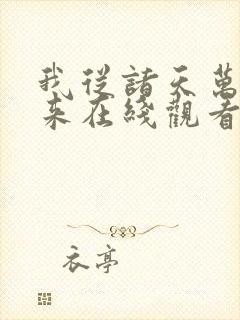 我從諸天萬
来在綫觀看
衣亭